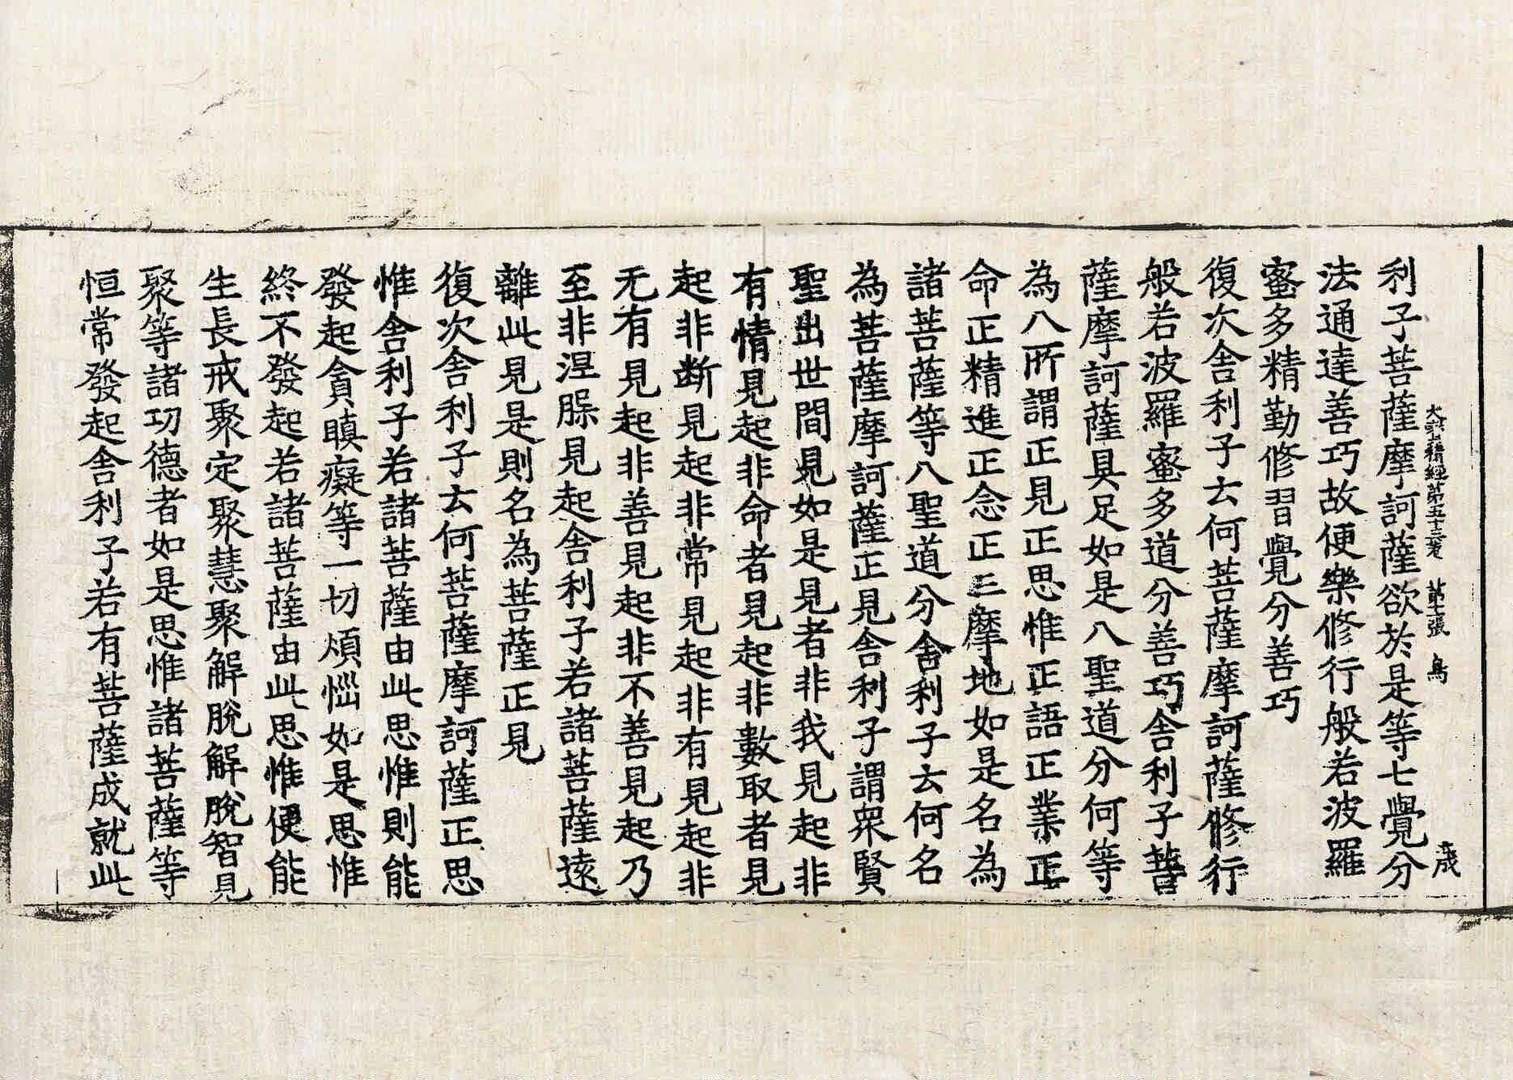 大寶積經第五十三卷 第七張 鳥
成
利子菩薩摩訶薩欲於是等七覺分
法通達善巧故便樂修行般若波羅
蜜多精勤修習覺分善巧
復次舍利子云何菩薩摩訶薩修行
般若波羅蜜多道分善巧舍利子菩
薩摩訶薩具足如是八聖道分何等
為八所謂正見正思惟正語正業正
命正精進正念正三摩地如是名為
諸菩薩等八聖道分舍利子云何名
為菩薩摩訶薩正見舍利子謂眾賢
聖出世間見如是見者非我見起非
有情見起非命者見起非數取者見
起非斷見起非常見起非有見起非
无有見起非善見起非不善見起乃
至非涅槃見起舍利子若諸菩薩遠
離此見是則名為菩薩正見
復次舍利子云何菩薩摩訶薩正思
惟舍利子若諸菩薩由此思惟則能
發起貪瞋癡等一切煩惱如是思惟
終不發起若諸菩薩由此思惟便能
生長戒聚定聚慧聚解脫解脫智見
聚等諸功德者如是思惟諸菩薩等
恒常發起舍利子若有菩薩成就此